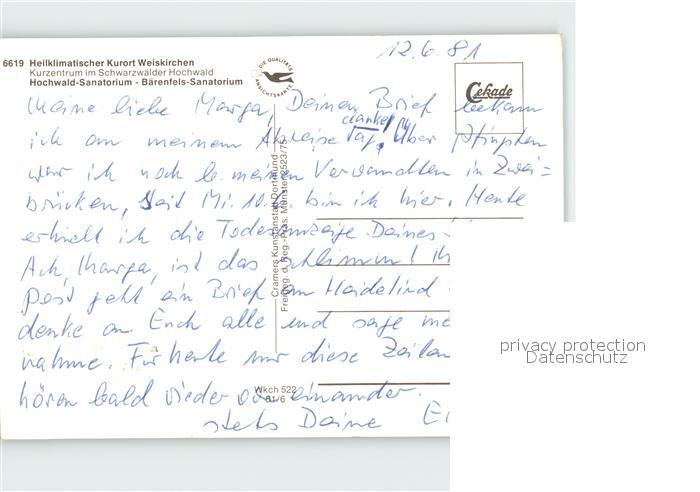 12.6.81
6619 Heilklimatischer Kurort Weiskirchen
Kurzentrum im Schwarzwälder Hochwald
Hochwald-Sanatorium - Bärenfels-Sanatorium
DIE QUALITÄTS ANSICHTSKARTE
Cekade
Meine liebe Marga, Deinen Brief bekam
ich am meinem Abreise Tag, danke! Über Pfingsten
war ich noch b. meinen Verwandten in Zwei=
brücken, seit Mi. 10.6. bin ich hier. Heute
erhielt ich die Todesanzeige Deines
Ach, Marga, ist das schlimm!
Post geht ein Brief an Heidelind
denke an Euch alle und sage
nahme. Für heute nur diese Zeilen
hören bald wieder von einander.
stets Deine
Cramers Kunstanstalt Dortmund
Freigeg. d. Reg.-Präs. Münster 2523/75
Wkch 522
81/6
privacy protection
Datenschutz